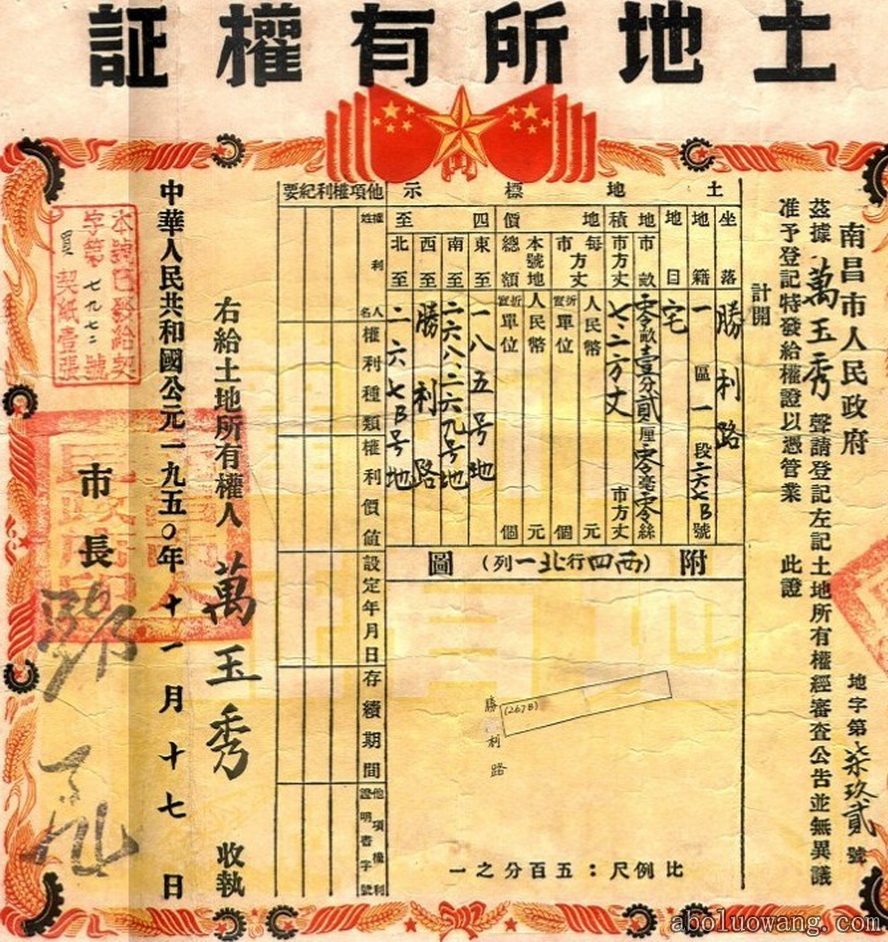 土地所有權証
南昌市人民政府
地字第柒玖貳號
茲據萬玉秀聲請登記左記土地所有權經審查公告並無異議
准予登記特發給權證以憑管業 此證
計開
土地標示
坐落 勝利路
地籍 一區一段二六七B號
地目 宅
地積
市畝 零畝壹分貳厘零毫零絲
市方丈 七.二方丈 市方丈
地價
每市方丈 人民幣 元
折實單位 個
本號地總額 人民幣 元
折實單位 個
四至
東至 一八五号地
南至 二六八.二六九号地
西至 勝利路
北至 二六七B号地
附圖(西四行北一列)
勝利路
(267B)
比例尺:五百分之一
他項權利紀要
權利人姓名
權利種類
權利價值
設定年月日
存續期間
他項權利證明書字號
右給土地所有權人萬玉秀 收執
中華人民共和國公元一九五〇年十一月十七日
市長
本號已發給契
字第七九七二號
買契紙壹張
aboluowang.com